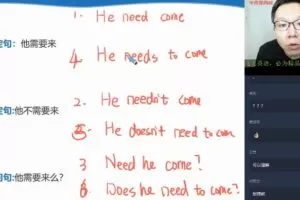 1. He need come
定句: 他需要来
4. He needs to come
2. He needn't come
定句: 他不需要来
5. He doesn't need to come
3 Need he come?
句: 他需要来么?
6 Does he need to come?
? ? ?